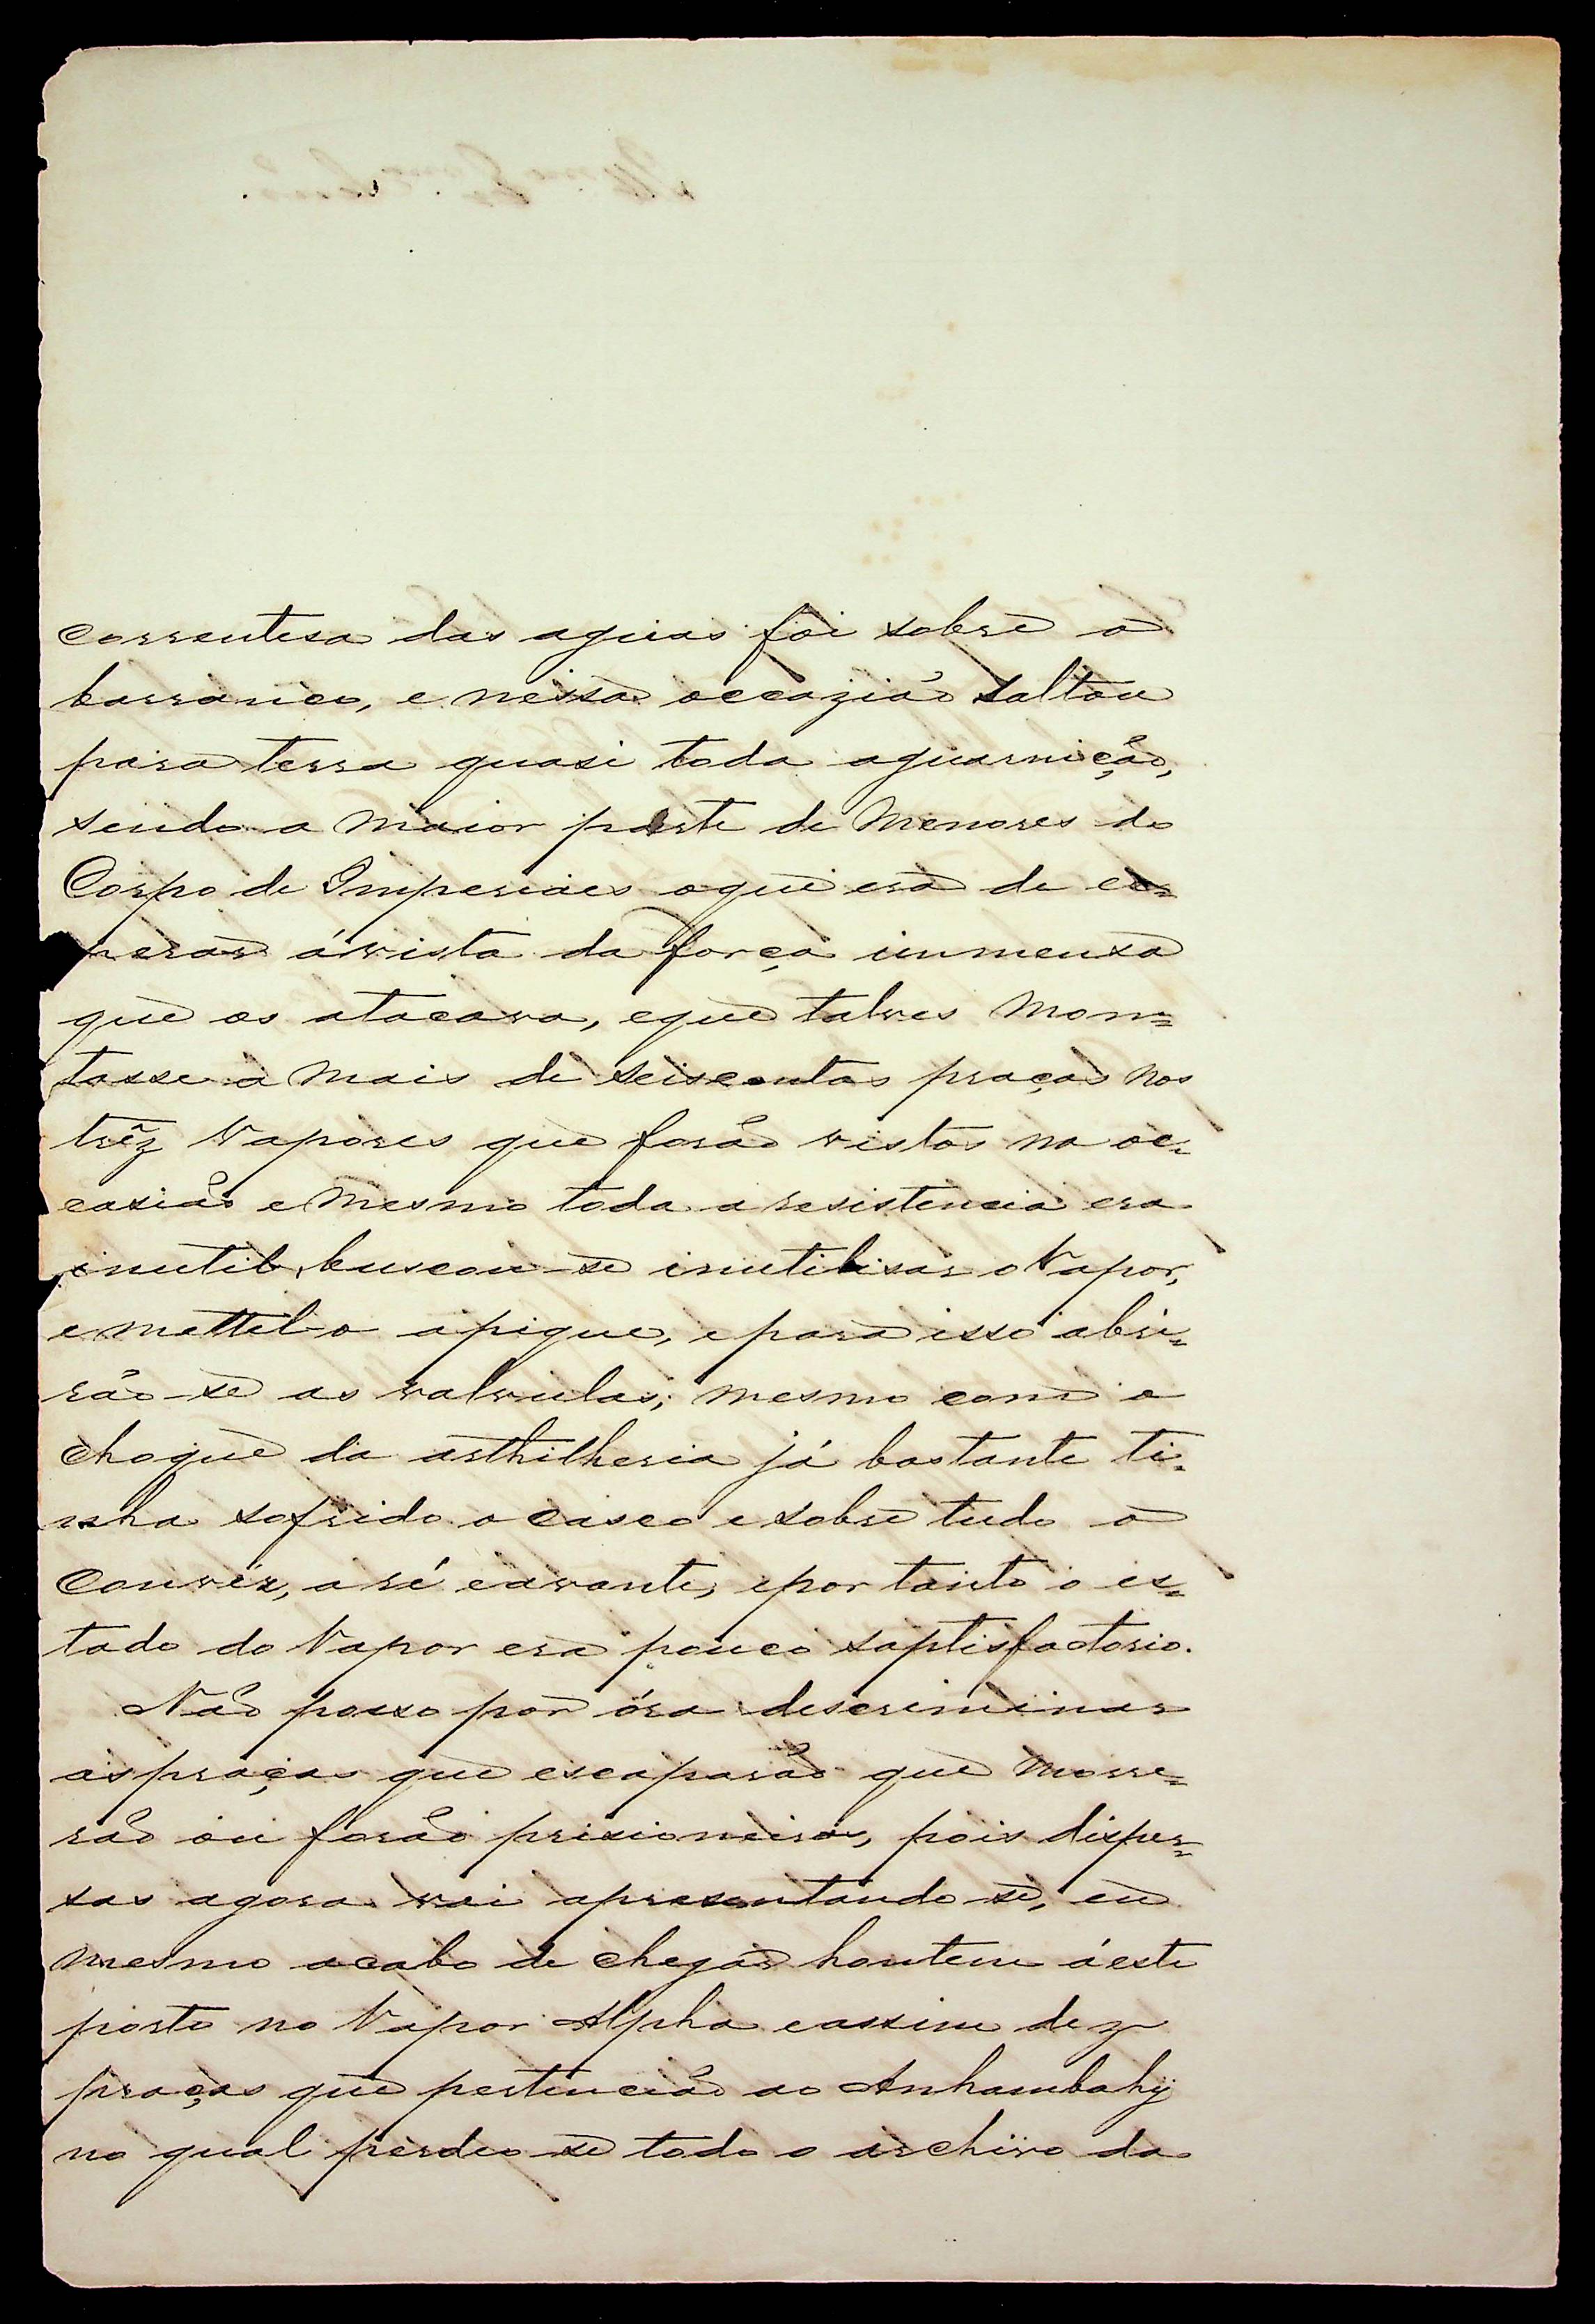 correntesa das aguas foi sobre o
barranco, e nessa occazião saltou
para terra quasi toda aguarnição,
sendo a maior parte de Menores do
Corpo de Imperiaes oque era de es=
perar ávista da força immensa
que os atacava, eque talves mon=
tasse a mais de seiscentas praças nos
trêz Vapores que forão vistos na oc=
casião e mesmo toda a resistencia era
inutil, buscou-se inutilisar o Vapor,
e mettel-o apique, e para isso abri=
rão-se as valvulas; mesmo com o
choque da arthilheria já bastante ti=
nha sofrido o casco e sobre tudo o
Convéz, a ré eavante, epor tanto o es=
tado do Vapor era pouco saptisfactorio.
Não posso por óra descriminar
as praças que escaparão que morre=
rão ou forão prisioneiros, pois disper=
sas agora vai apresentando-se, eu
mesmo acabo de chegar hontem áeste
porto no Vapor Alpha eassim dez
praças que pertencião ao Anhambahy
no qual perdeo-se todo o archivo da